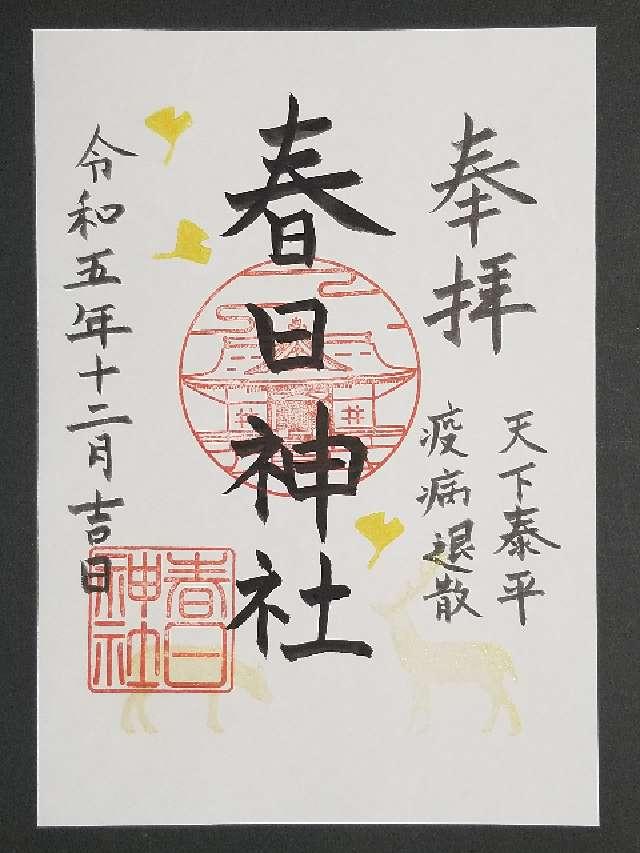 奉拝
天下泰平
疫病退散
春日神社
令和五年十二月吉日
春日
神社